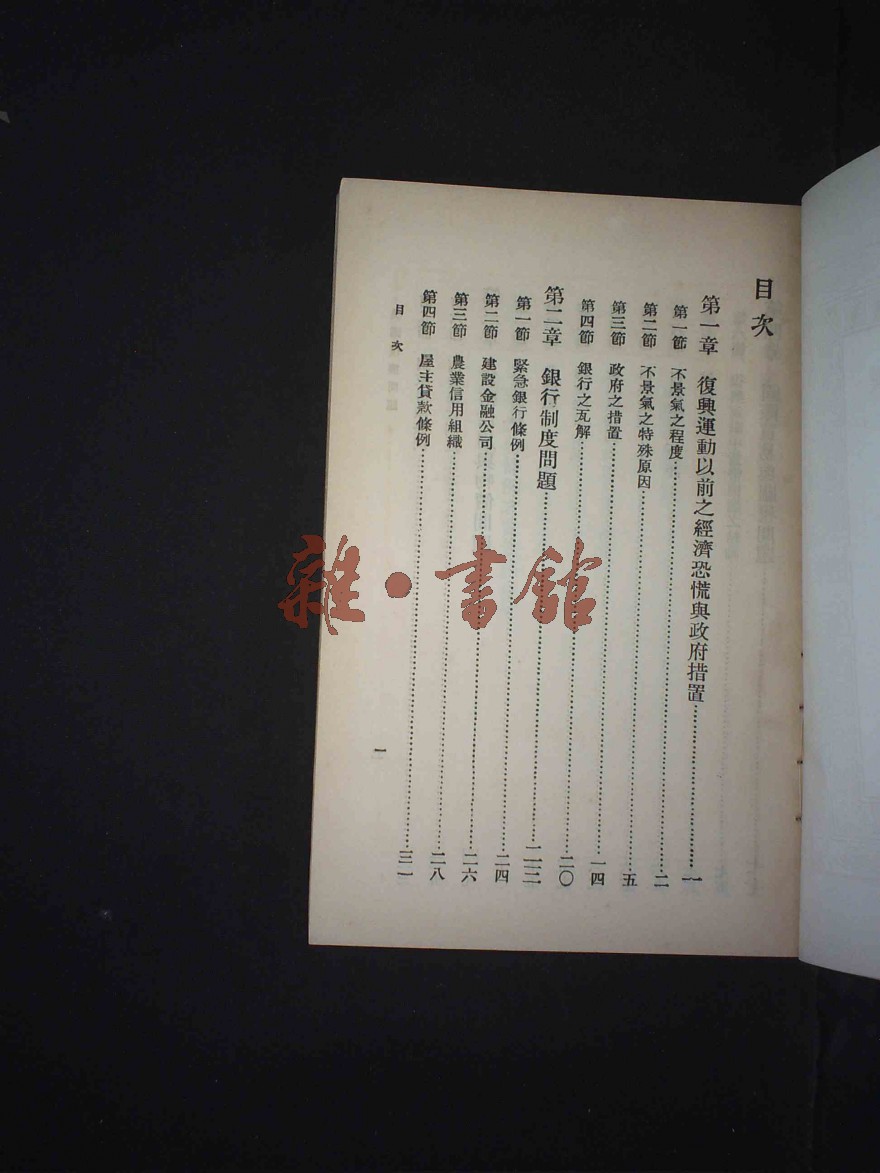 目次
第一章 復興運動以前之經濟恐慌與政府措置……一
第一節 不景氣之程度……二
第二節 不景氣之特殊原因……五
第三節 政府之措置……一四
第四節 銀行之瓦解……二〇
第二章 銀行制度問題……二三
第一節 緊急銀行條例……二四
第二節 建設金融公司……二六
第三節 農業信用組織……二八
第四節 屋主貸款條例……三一
目次
一
雜·書館